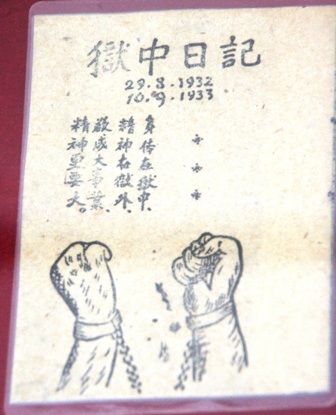 獄中日記
29.8.1932
10.9.1933
身体在獄中、
精神在獄外、
欲成大事業、
精神更要大、